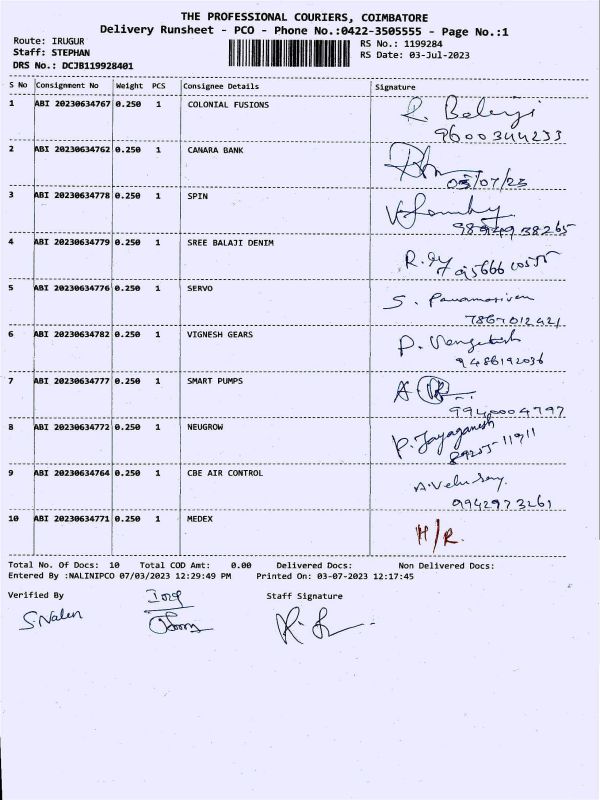 THE PROFESSIONAL COURIERS, COIMBATORE
Delivery Runsheet - PCO - Phone No.:0422-3505555 - Page No.:1
Route: IRUGUR RS No.: 1199284
Staff: STEPHAN RS Date: 03-Jul-2023
DRS No.: DCJB119928401
S No Consignment No Weight PCS Consignee Details Signature
1 ABI 20230634767 0.250 1 COLONIAL FUSIONS R. Balaji
9600344233
2 ABI 20230634762 0.250 1 CANARA BANK
03/07/23
3 ABI 20230634778 0.250 1 SPIN
4 ABI 20230634779 0.250 1 SREE BALAJI DENIM
5 ABI 20230634776 0.250 1 SERVO S.
7867012421
6 ABI 20230634782 0.250 1 VIGNESH GEARS P. Vengatesh
9486192036
7 ABI 20230634777 0.250 1 SMART PUMPS
9940004797
8 ABI 20230634772 0.250 1 NEUGROW P. Jayaganesh
89255-11911
9 ABI 20230634764 0.250 1 CBE AIR CONTROL A. Velusamy
9942973261
10 ABI 20230634771 0.250 1 MEDEX H/R.
Total No. Of Docs: 10 Total COD Amt: 0.00 Delivered Docs: Non Delivered Docs:
Entered By :NALINIPCO 07/03/2023 12:29:49 PM Printed On: 03-07-2023 12:17:45
Verified By Staff Signature
S.Nalen